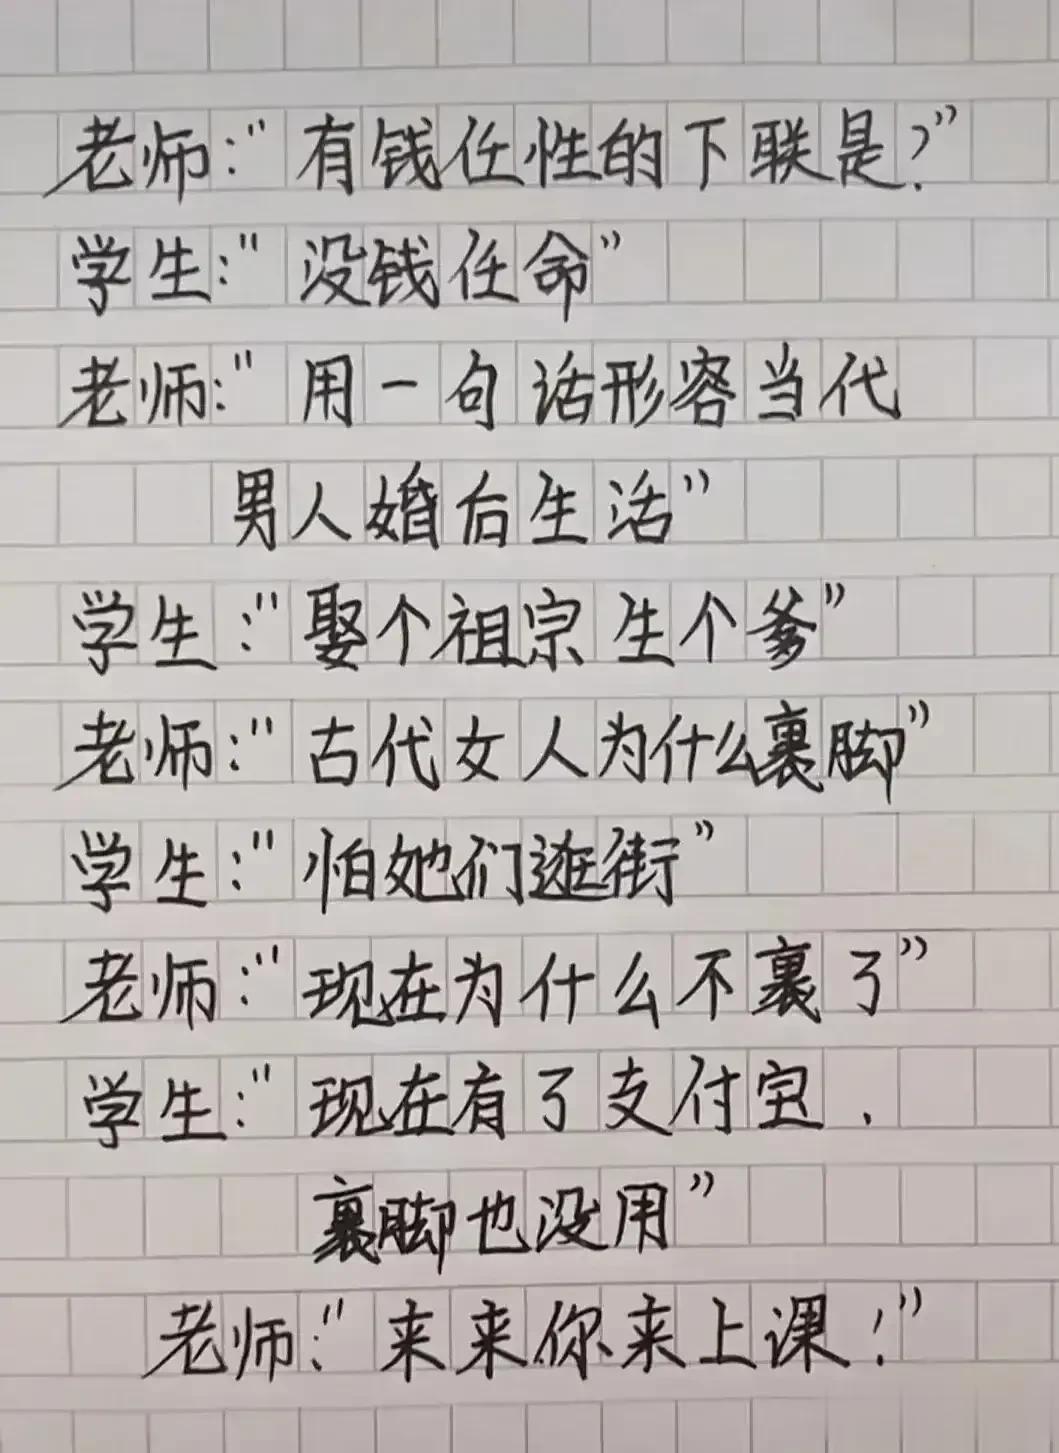 老师:"有钱任性的下联是?"
学生:"没钱任命"
老师:"用一句话形容当代
男人婚后生活"
学生:"娶个祖宗生个爹"
老师:"古代女人为什么裹脚"
学生:"怕她们逛街"
老师:"现在为什么不裹了"
学生:"现在有了支付宝.
裹脚也没用"
老师:"来来你来上课!"